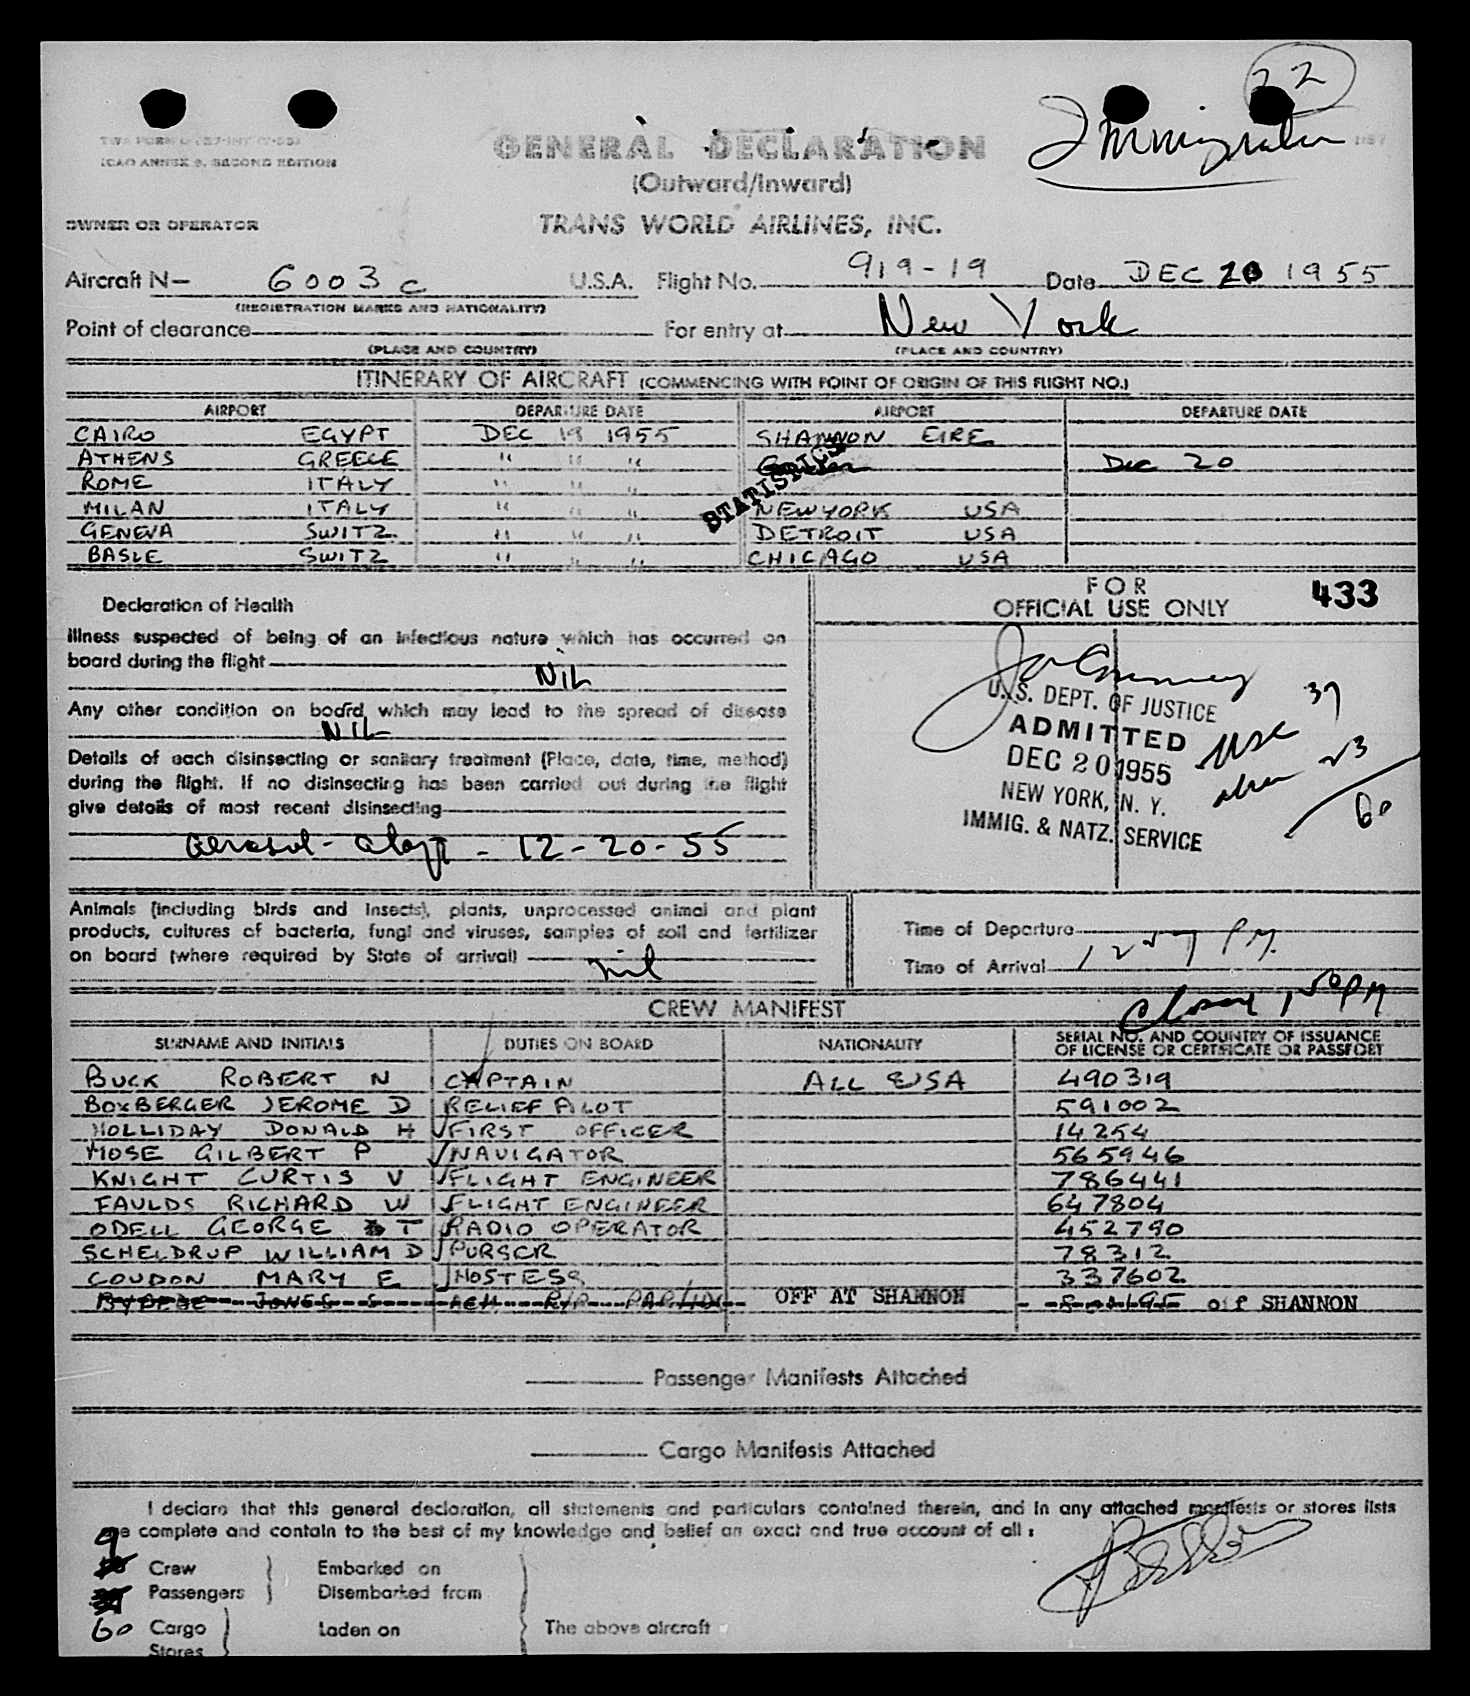 22
Immigration
TWA FORM
ICAO ANNEX 9, SECOND EDITION
GENERAL DECLARATION
(Outward/Inward)
OWNER OR OPERATOR TRANS WORLD AIRLINES, INC.
Aircraft N- 6003 C U.S.A. Flight No. 919-19 Date DEC 20 1955
(REGISTRATION MARKS AND NATIONALITY)
Point of clearance For entry at New York
(PLACE AND COUNTRY) (PLACE AND COUNTRY)
ITINERARY OF AIRCRAFT (COMMENCING WITH POINT OF ORIGIN OF THIS FLIGHT NO.)
AIRPORT DEPARTURE DATE AIRPORT DEPARTURE DATE
CAIRO EGYPT DEC 19 1955 SHANNON EIRE
ATHENS GREECE " " " Gander Dec 20
ROME ITALY " " "
MILAN ITALY " " " NEWYORK USA
GENEVA SWITZ. " " " DETROIT USA
BASLE SWITZ " " " CHICAGO USA
STATISTICS
Declaration of Health
Illness suspected of being of an infectious nature which has occurred on
board during the flight
NIL
Any other condition on board which may lead to the spread of disease
NIL
Details of each disinsecting or sanitary treatment (Place, date, time, method)
during the flight. If no disinsecting has been carried out during the flight
give details of most recent disinsecting
aerosol - - 12-20-55
FOR
OFFICIAL USE ONLY 433
U.S. DEPT. OF JUSTICE
ADMITTED
DEC 20 1955
NEW YORK, N. Y.
IMMIG. & NATZ. SERVICE
USC 37
alien 23
60
Animals (including birds and insects), plants, unprocessed animal and plant
products, cultures of bacteria, fungi and viruses, samples of soil and fertilizer
on board (where required by State of arrival) nil
Time of Departure
Time of Arrival 1257 PM.
Closed 150PM
CREW MANIFEST
SURNAME AND INITIALS DUTIES ON BOARD NATIONALITY SERIAL NO. AND COUNTRY OF ISSUANCE
OF LICENSE OR CERTIFICATE OR PASSPORT
BUCK ROBERT N CAPTAIN ALL USA 490319
BOXBERGER JEROME D RELIEF PILOT 591002
HOLLIDAY DONALD H FIRST OFFICER 14254
MOSE GILBERT P NAVIGATOR 565946
KNIGHT CURTIS V FLIGHT ENGINEER 786441
FAULDS RICHARD W FLIGHT ENGINEER 647804
ODELL GEORGE T RADIO OPERATOR 452790
SCHELDRUP WILLIAM D PURSER 78312
COUDON MARY E HOSTESS 337602
OFF AT SHANNON off SHANNON
Passenger Manifests Attached
Cargo Manifests Attached
I declare that this general declaration, all statements and particulars contained therein, and in any attached manifests or stores lists
are complete and contain to the best of my knowledge and belief an exact and true account of all :
9
Crew Embarked on
Passengers Disembarked from
60 Cargo Laden on The above aircraft
Stores